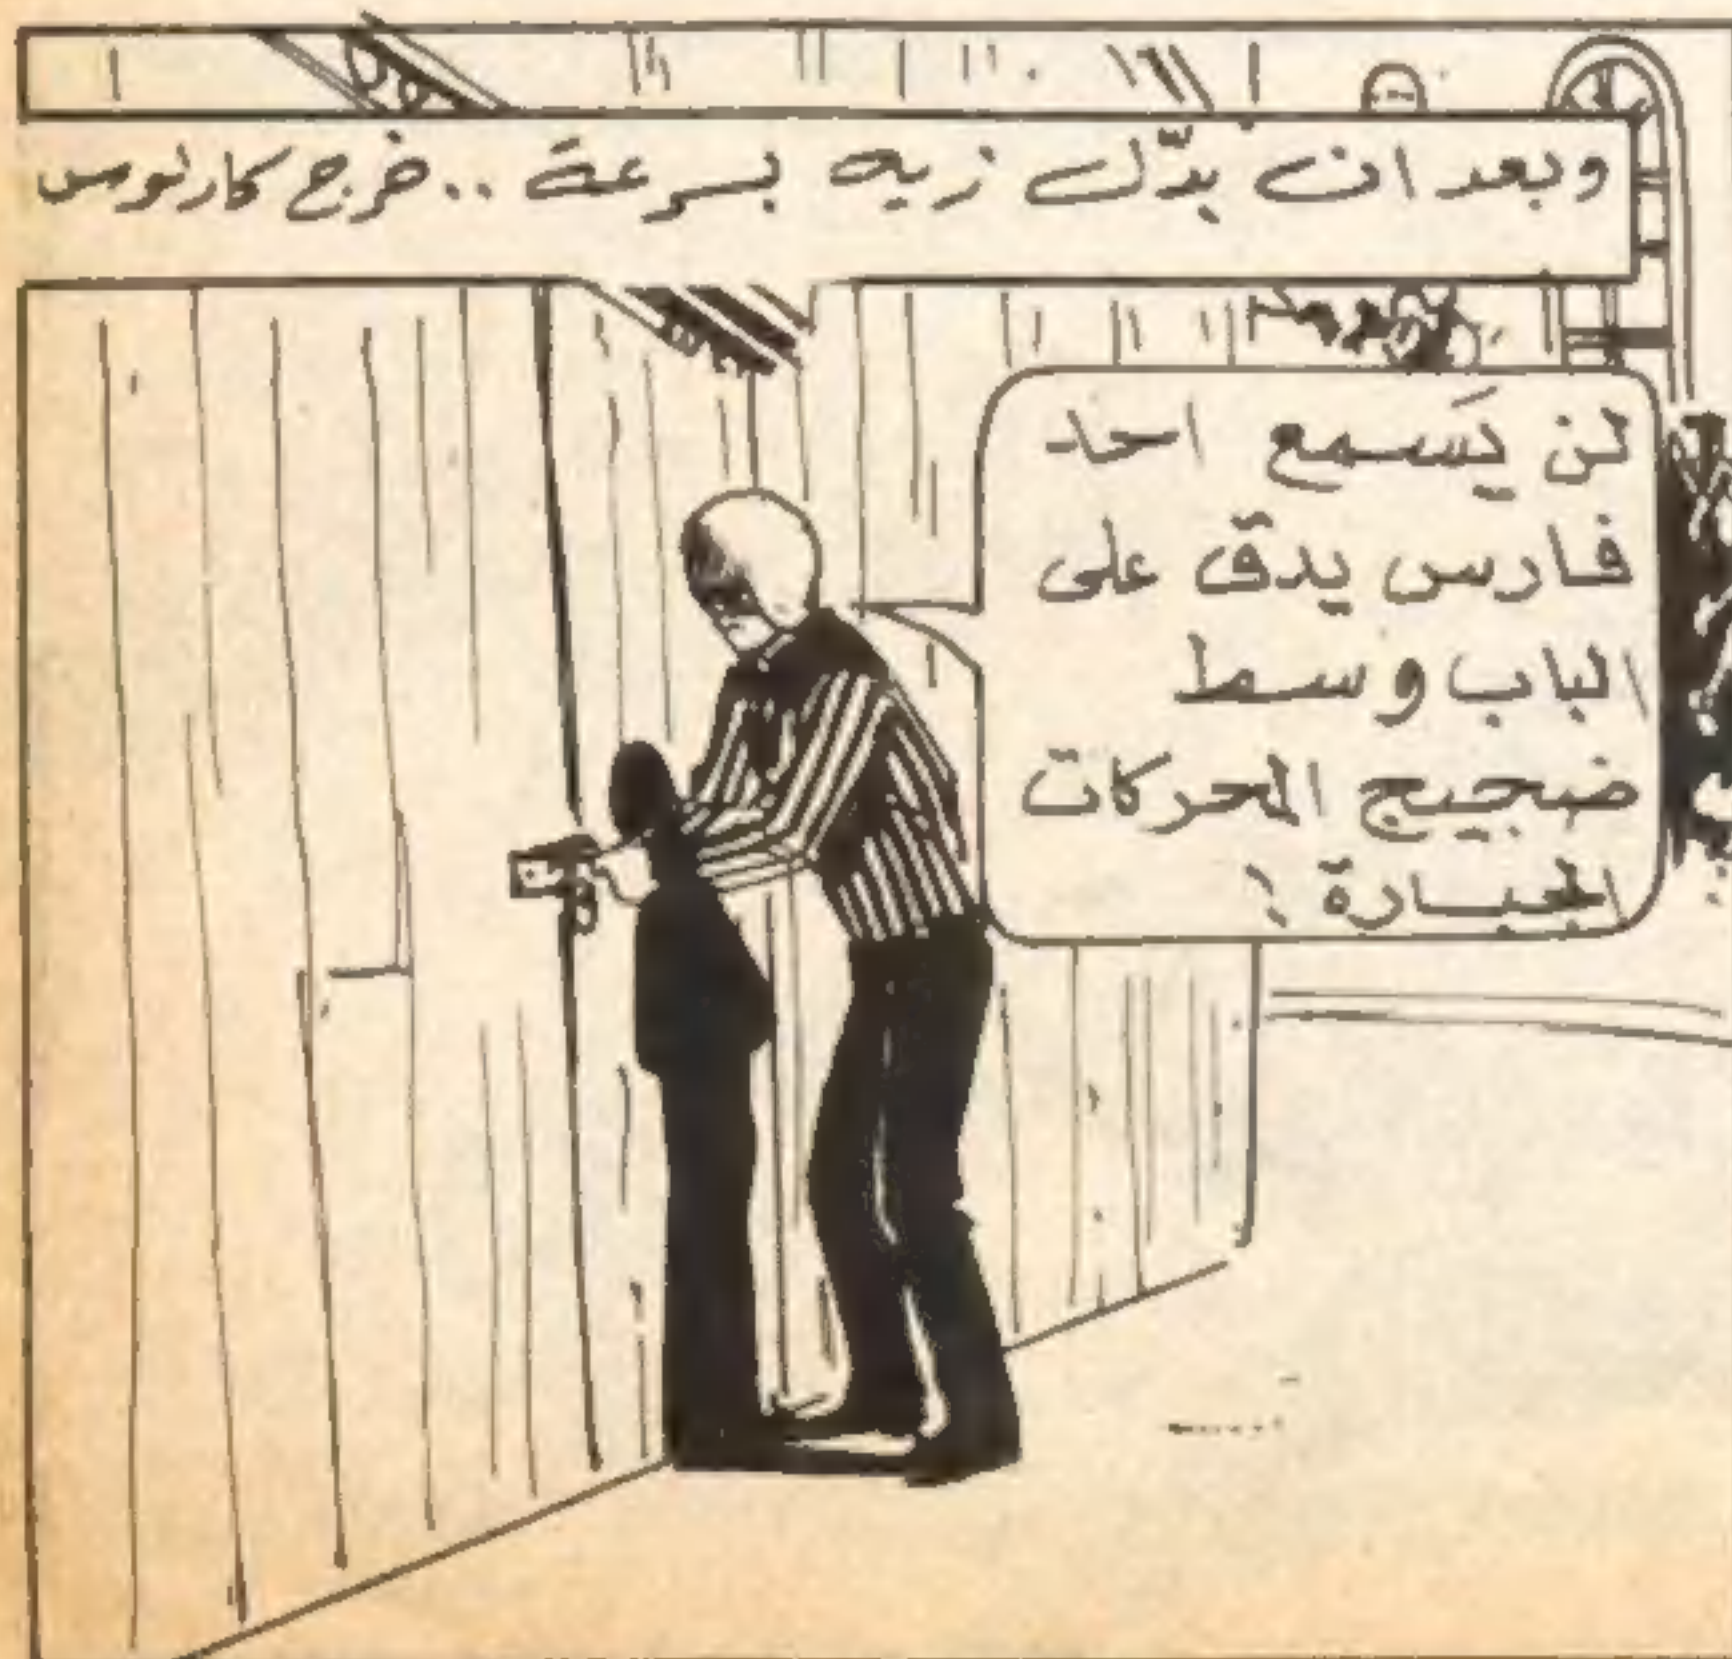 وبعد ان بدّل زيه بسرعة .. خرج كارلوس
لن يَسمع احد
فارس يدق على
الباب وسط
ضجيج المحركات
الجبارة !